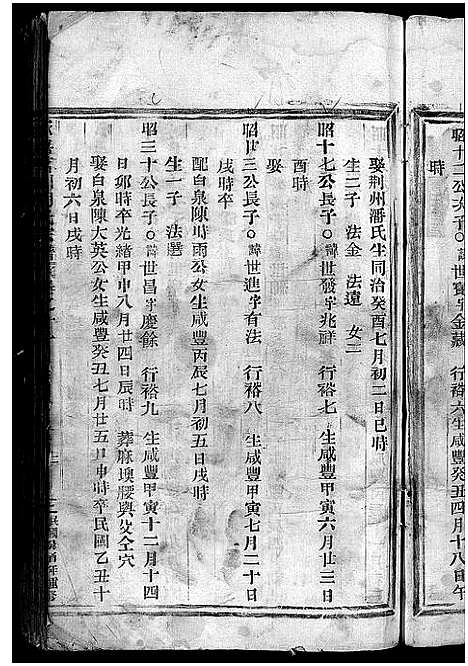 昭十二公次子○諱世寶字金裁 行裕六生咸豐癸丑四月十八日午
時
娶荆州潘氏生同治癸酉七月初二日巳時
生二子 法金 法遠 女二
昭十七公長子○諱世發字兆祥 行裕七 生咸豐甲寅六月廿三日
酉時
娶
昭廿三公長子○諱世進字有法 行裕八 生咸豐甲寅七月二十日
戌時卒
配白泉陳時雨公女生咸豐丙辰七月初五日戌時
生一子 法選
昭三十公長子○諱世昌字慶餘 行裕九 生咸豐甲寅十二月十四
日卯時卒光緒甲申八月廿四日辰時 葬麻墺腰與父仝穴
娶白泉陳大英公女生咸豐癸丑七月廿五日申時卒民國乙丑十
月初六日戌時